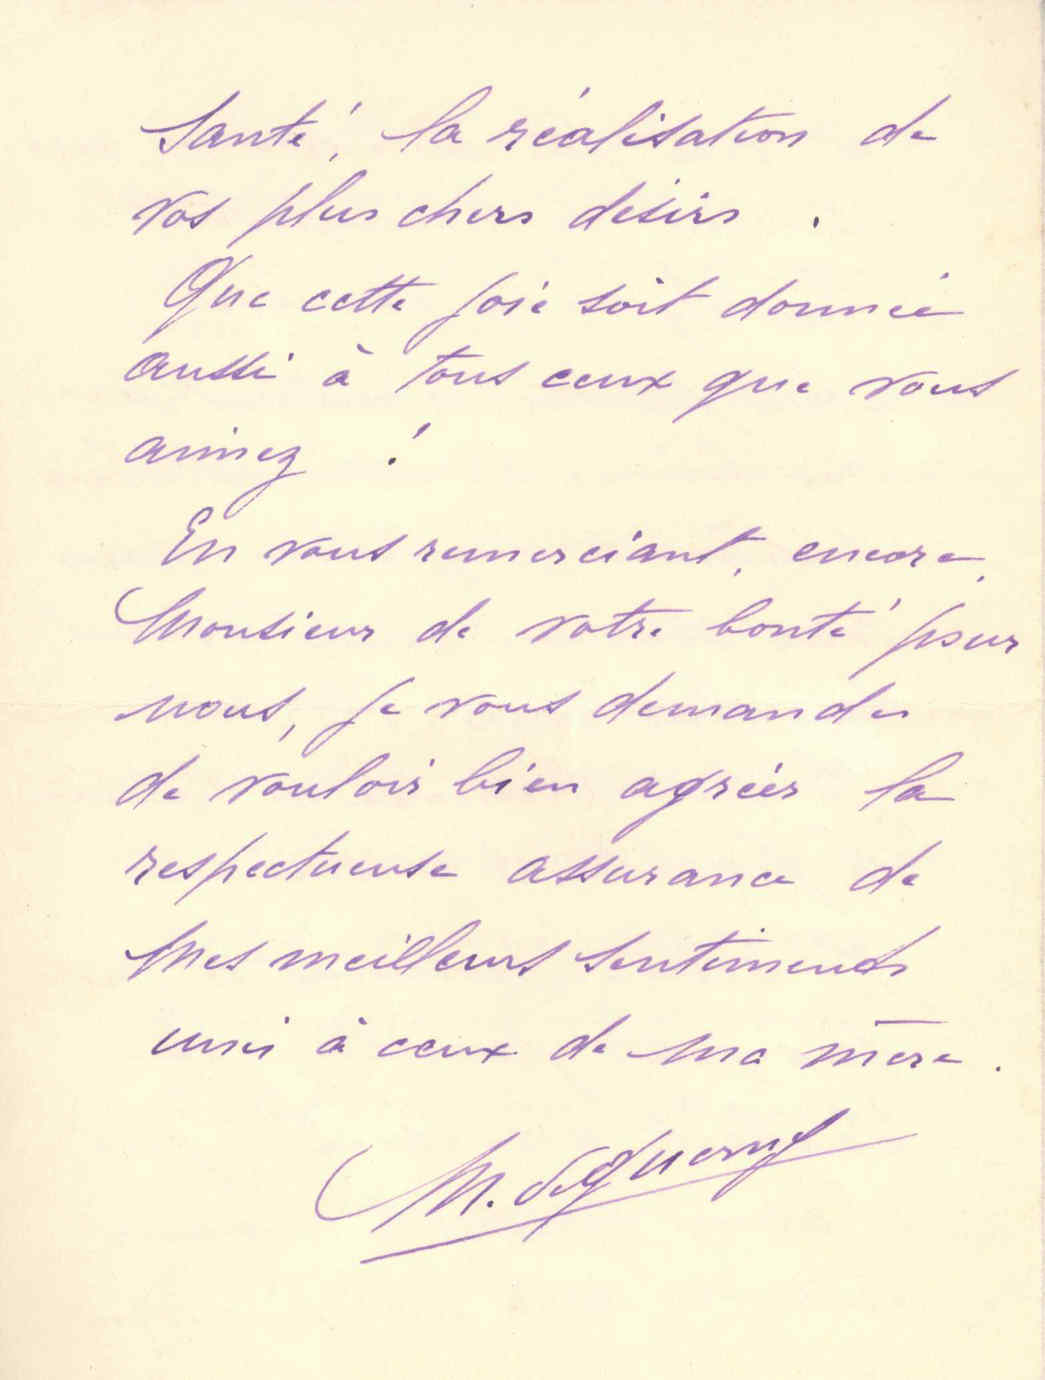 Santé, la réalisation de
vos plus chers désirs .
Que cette joie soit donnée
aussi à tous ceux que vous
aimez !
En vous remerciant, encore,
Monsieur de votre bonté pour
nous, je vous demander
de vouloir bien agréer la
respectueuse assurance de
mes meilleurs sentiments
unis à ceux de ma mère .
M.